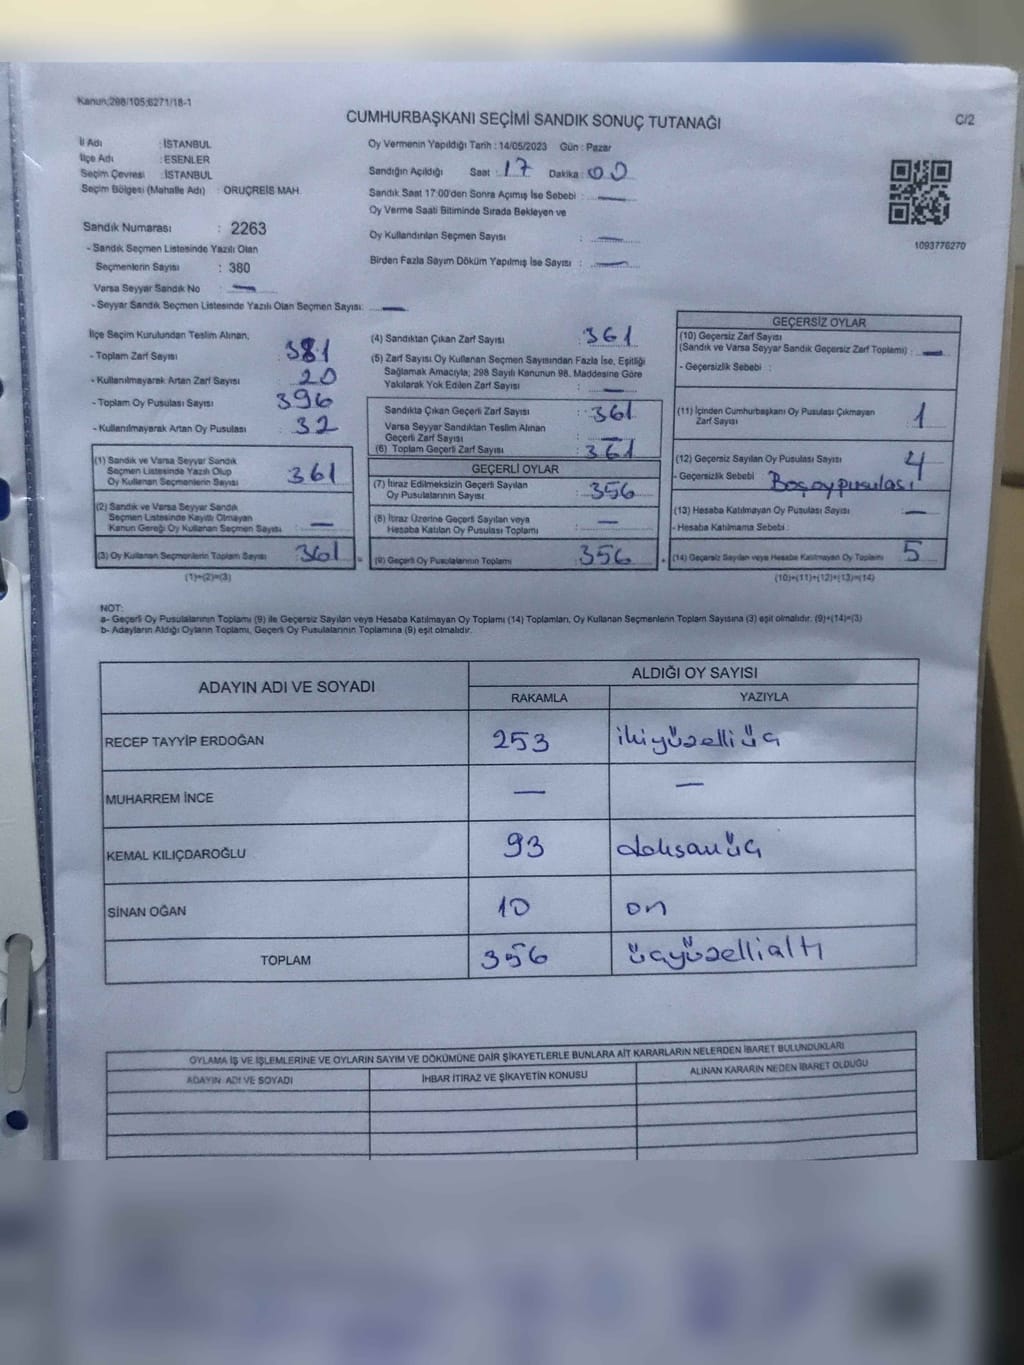 Kanun;298/105;6271/18-1
CUMHURBAŞKANI SEÇİMİ SANDIK SONUÇ TUTANAĞI
C/2
İl Adı : İSTANBUL
İlçe Adı : ESENLER
Seçim Çevresi : İSTANBUL
Seçim Bölgesi (Mahalle Adı) : ORUÇREİS MAH.
Oy Vermenin Yapıldığı Tarih : 14/05/2023 Gün : Pazar
Sandığın Açıldığı Saat : 17 Dakika : 00
Sandık Saat 17:00'den Sonra Açımış İse Sebebi : —
Oy Verme Saati Bitiminde Sırada Bekleyen ve
Oy Kullandırılan Seçmen Sayısı : —
Birden Fazla Sayım Döküm Yapılmış İse Sayısı : —
1093776270
Sandık Numarası : 2263
- Sandık Seçmen Listesinde Yazılı Olan
Seçmenlerin Sayısı : 380
Varsa Seyyar Sandık No —
- Seyyar Sandık Seçmen Listesinde Yazılı Olan Seçmen Sayısı: —
İlçe Seçim Kurulundan Teslim Alınan,
- Toplam Zarf Sayısı 381
- Kullanılmayarak Artan Zarf Sayısı 20
- Toplam Oy Pusulası Sayısı 396
- Kullanılmayarak Artan Oy Pusulası 32
(1) Sandık ve Varsa Seyyar Sandık
Seçmen Listesinde Yazılı Olup
Oy Kullanan Seçmenlerin Sayısı 361
(2) Sandık ve Varsa Seyyar Sandık
Seçmen Listesinde Kayıtlı Olmayan
Kanun Gereği Oy Kullanan Seçmen Sayısı —
(3) Oy Kullanan Seçmenlerin Toplam Sayısı 361
(1)+(2)=(3)
(4) Sandıktan Çıkan Zarf Sayısı : 361
(5) Zarf Sayısı Oy Kullanan Seçmen Sayısından Fazla İse, Eşitliği
Sağlamak Amacıyla; 298 Sayılı Kanunun 98. Maddesine Göre
Yakılarak Yok Edilen Zarf Sayısı : —
Sandıkta Çıkan Geçerli Zarf Sayısı : 361
Varsa Seyyar Sandıktan Teslim Alınan
Geçerli Zarf Sayısı : —
(6) Toplam Geçerli Zarf Sayısı : 361
GEÇERLİ OYLAR
(7) İtiraz Edilmeksizin Geçerli Sayılan
Oy Pusulalarının Sayısı : 356
(8) İtiraz Üzerine Geçerli Sayılan veya
Hesaba Katılan Oy Pusulası Toplamı : —
= (9) Geçerli Oy Pusulalarının Toplamı : 356
GEÇERSİZ OYLAR
(10) Geçersiz Zarf Sayısı
(Sandık ve Varsa Seyyar Sandık Geçersiz Zarf Toplamı) : —
- Geçersizlik Sebebi :
(11) İçinden Cumhurbaşkanı Oy Pusulası Çıkmayan
Zarf Sayısı 1
(12) Geçersiz Sayılan Oy Pusulası Sayısı 4
- Geçersizlik Sebebi Boş oy pusulası
(13) Hesaba Katılmayan Oy Pusulası Sayısı —
- Hesaba Katılmama Sebebi :
+ (14) Geçersiz Sayılan veya Hesaba Katılmayan Oy Toplamı 5
(10)+(11)+(12)+(13)=(14)
NOT:
a- Geçerli Oy Pusulalarının Toplamı (9) ile Geçersiz Sayılan veya Hesaba Katılmayan Oy Toplamı (14) Toplamları, Oy Kullanan Seçmenlerin Toplam Sayısına (3) eşit olmalıdır. (9)+(14)=(3)
b- Adayların Aldığı Oyların Toplamı, Geçerli Oy Pusulalarının Toplamına (9) eşit olmalıdır.
ADAYIN ADI VE SOYADI
ALDIĞI OY SAYISI
RAKAMLA YAZIYLA
RECEP TAYYİP ERDOĞAN 253 ikiyüzelliüç
MUHARREM İNCE — —
KEMAL KILIÇDAROĞLU 93 doksanüç
SİNAN OĞAN 10 on
TOPLAM 356 üçyüzellialtı
OYLAMA İŞ VE İŞLEMLERİNE VE OYLARIN SAYIM VE DÖKÜMÜNE DAİR ŞİKAYETLERLE BUNLARA AİT KARARLARIN NELERDEN İBARET BULUNDUKLARI
ADAYIN ADI VE SOYADI İHBAR İTİRAZ VE ŞİKAYETİN KONUSU ALINAN KARARIN NEDEN İBARET OLDUĞU